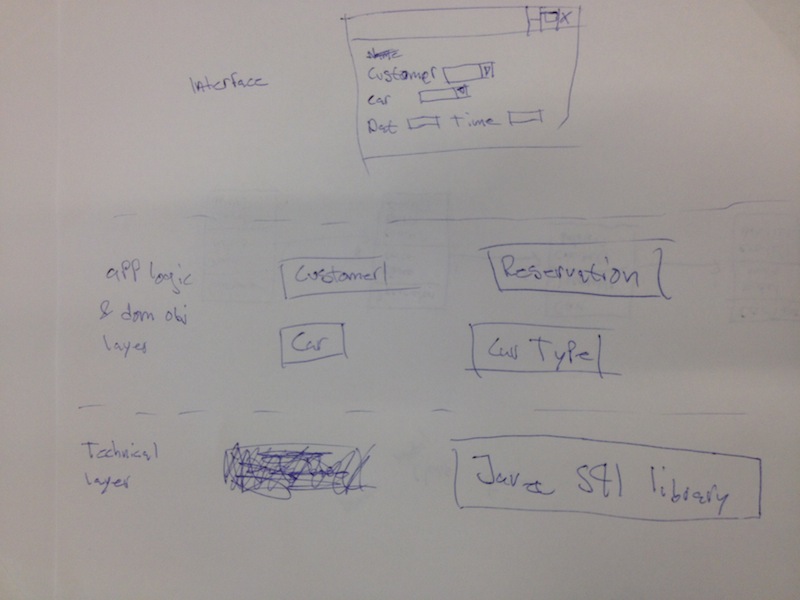 Interface
X
Customer
Car
Dat Time
app Logic
& dom obj
layer
Customer
Reservation
Car
Car Type
Technical
Layer
Java SQl library